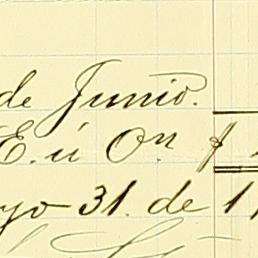 de Junio.
E. ú On $
yo 31. de 1